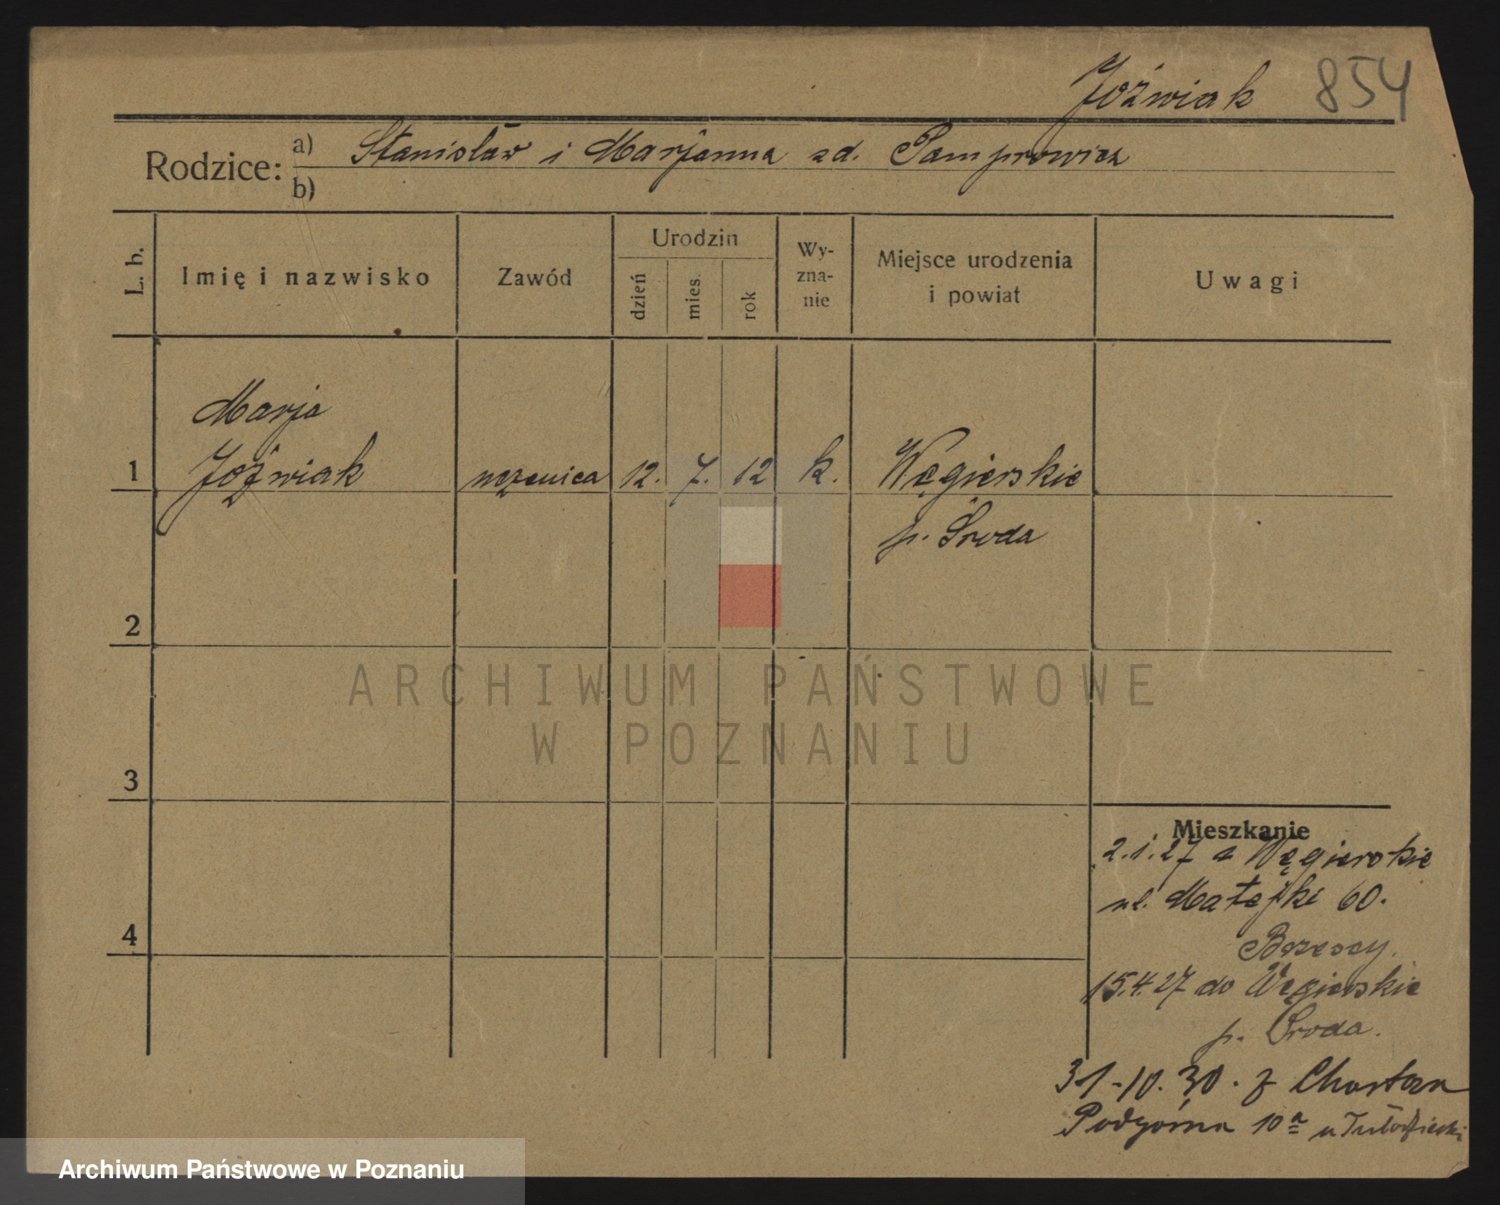 Jóźwiak 854
Rodzice: a) Stanisław i Marjanna zd. Pamprowicz
b)
L. b.
Imię i nazwisko
Zawód
Urodzin
dzień
mies.
rok
Wy-
zna-
nie
Miejsce urodzenia
i powiat
Uwagi
Marja
1 Jóźwiak uczenica 12. 7. 12 k. Węgierskie
p. Środa
2
ARCHIWUM PAŃSTWOWE
W POZNANIU
3
4
Mieszkanie
2.1.27 z Węgierskie
ul. Matejki 60.
15.4.27 do Węgierskie
p. Środa.
31-10.30. z
Podgórna 10a u
Archiwum Państwowe w Poznaniu